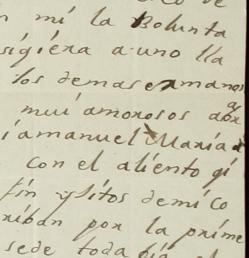 n mi la Bolunta
sigiera a uno lla
los demas ermanos
mui amorosos
manuel Maria
con el aliento qi
fin ysitos de mi co
riban por la prime
sede toda